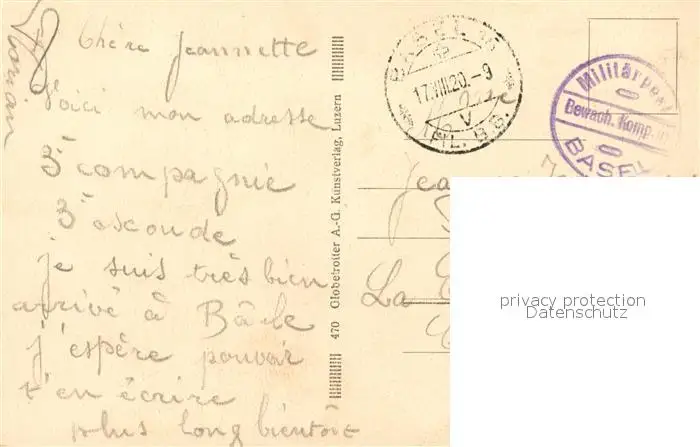 Chère Jeannette
Voici mon adresse
3e compagnie
3e escoude
je suis très bien
arrivé à Bâle
j'espère pouvoir
t'en écrire
plus long bientôt
470 Globetrotter A.-G. Kunstverlag, Luzern
BASEL
17.VIII.20.-9
V
Militärpost
Bewach. Komp.
BASEL
La
privacy protection
Datenschutz